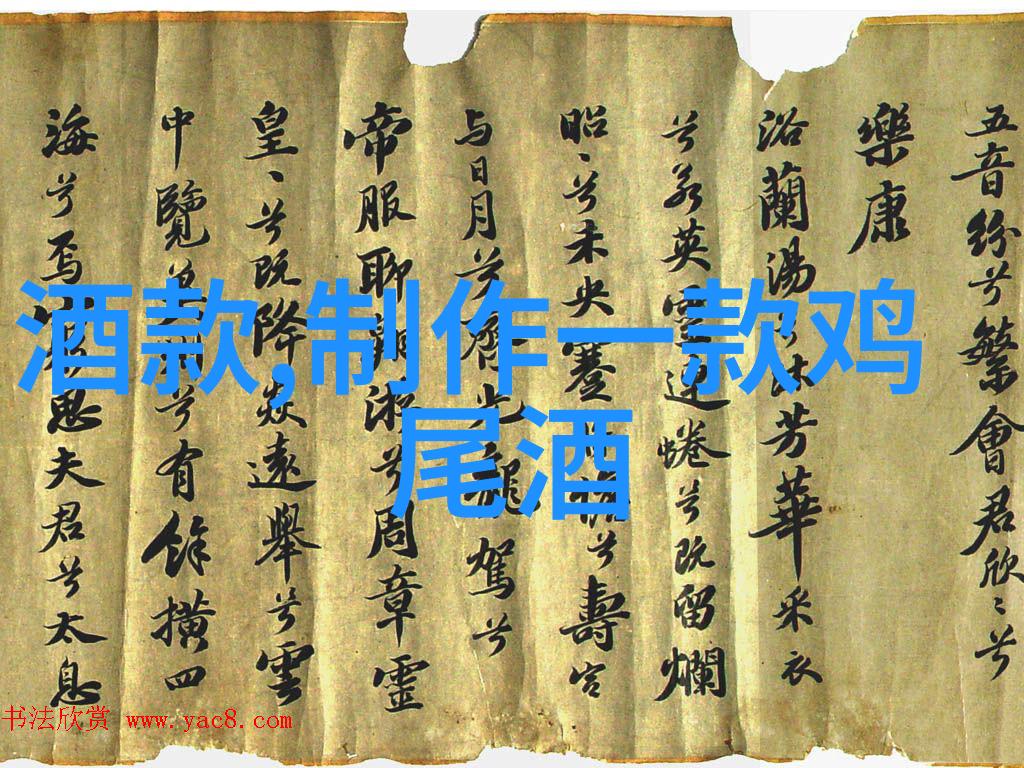 五音紛兮繁會君欣〻兮
樂康
浴蘭湯兮沐芳華采衣
兮若英靈連蜷兮既留爛
昭〻兮未央蹇將憺兮壽宮
与日月兮齊光龍駕兮
帝服聊翱遊兮周章靈
皇〻兮既降猋遠舉兮雲
中覽冀州兮有餘橫四
海兮焉窮思夫君兮太息
酒款,制作一款鸡
尾酒
书法欣赏 www.yac8.com